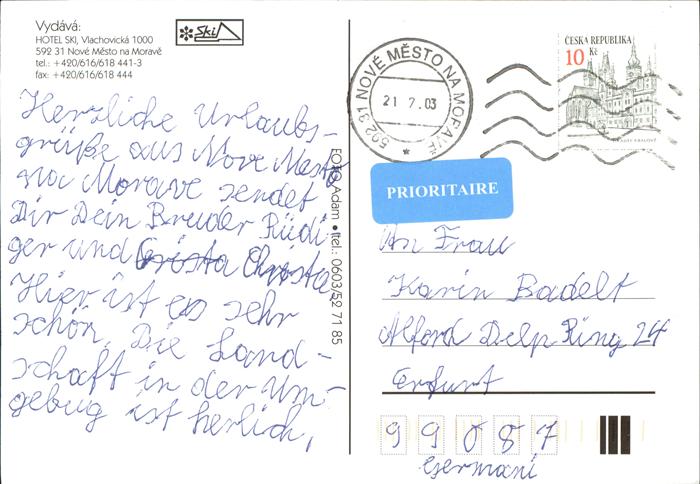 Vydává:
HOTEL SKI, Vlachovická 1000
592 31 Nové Město na Moravě
tel.: +420/616/618 441-3
fax: +420/616/618 444
Ski
Herzliche Urlaubs-
grüße aus Nove Mesto
na Morave sendet
Dir Dein Bruder Rüdi
ger und Christa
Hier ist es sehr
schön. Die Land-
schaft in der Um-
gebug ist herlich,
FOTO Adam • tel.: 0603/52 71 85
592 31 NOVÉ MĚSTO NA MORAVĚ
21.7.03
ČESKÁ REPUBLIKA
10 Kč
PRIORITAIRE
An Frau
Karin Badelt
Alford Delp Ring 24
Erfurt
99087
Germani